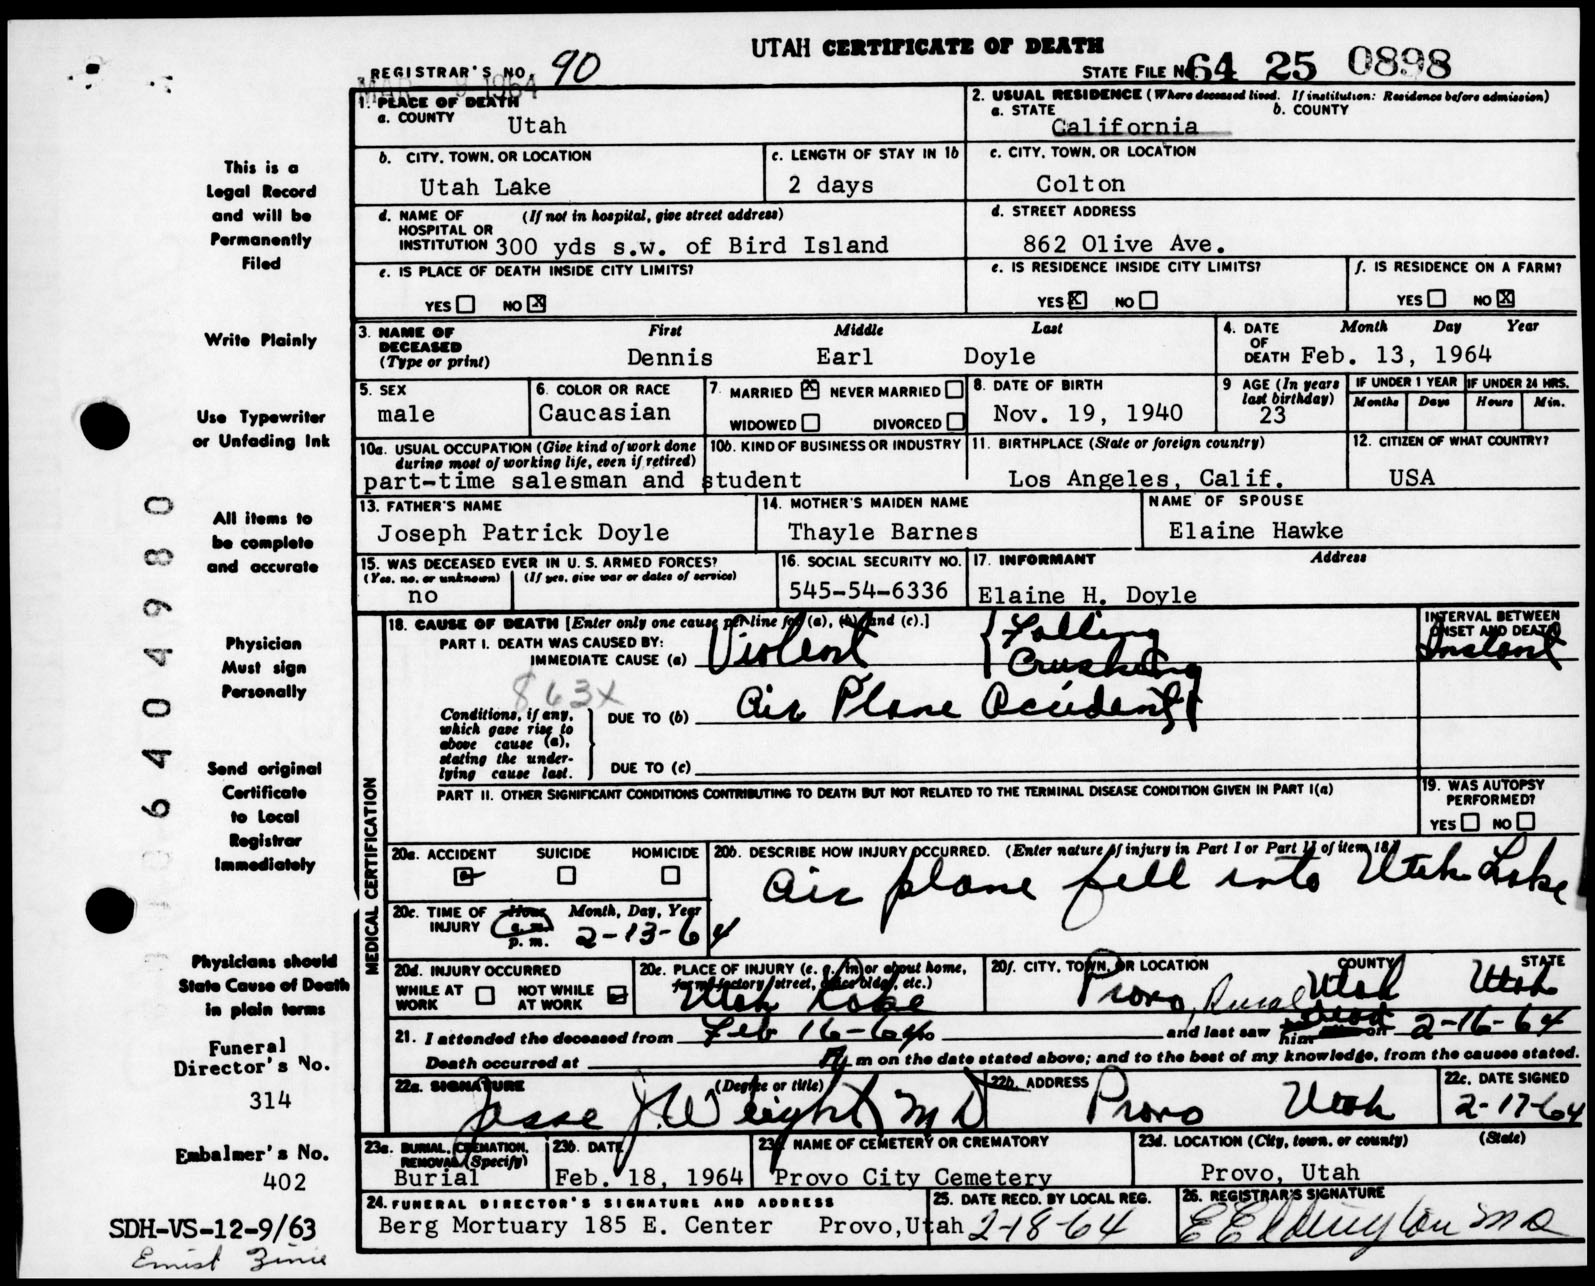 UTAH CERTIFICATE OF DEATH
REGISTRAR'S NO. 90
STATE FILE NO. 64 25 0898
MAR 9 1964
1. PLACE OF DEATH
a. COUNTY Utah
2. USUAL RESIDENCE (Where deceased lived. If institution: Residence before admission)
a. STATE California b. COUNTY
b. CITY, TOWN, OR LOCATION Utah Lake
c. LENGTH OF STAY IN 1b 2 days
c. CITY, TOWN, OR LOCATION Colton
d. NAME OF HOSPITAL OR INSTITUTION (If not in hospital, give street address) 300 yds s.w. of Bird Island
d. STREET ADDRESS 862 Olive Ave.
e. IS PLACE OF DEATH INSIDE CITY LIMITS?
YES NO X
e. IS RESIDENCE INSIDE CITY LIMITS?
YES X NO
f. IS RESIDENCE ON A FARM?
YES NO X
3. NAME OF DECEASED (Type or print)
First Middle Last
Dennis Earl Doyle
4. DATE OF DEATH Month Day Year
Feb. 13, 1964
5. SEX male
6. COLOR OR RACE Caucasian
7. MARRIED X NEVER MARRIED
WIDOWED DIVORCED
8. DATE OF BIRTH Nov. 19, 1940
9 AGE (In years last birthday) 23
IF UNDER 1 YEAR Months Days
IF UNDER 24 HRS. Hours Min.
10a. USUAL OCCUPATION (Give kind of work done during most of working life, even if retired)
10b. KIND OF BUSINESS OR INDUSTRY
part-time salesman and student
11. BIRTHPLACE (State or foreign country) Los Angeles, Calif.
12. CITIZEN OF WHAT COUNTRY? USA
13. FATHER'S NAME Joseph Patrick Doyle
14. MOTHER'S MAIDEN NAME Thayle Barnes
NAME OF SPOUSE Elaine Hawke
15. WAS DECEASED EVER IN U. S. ARMED FORCES?
(Yes, no, or unknown) (If yes, give war or dates of service)
no
16. SOCIAL SECURITY NO. 545-54-6336
17. INFORMANT Address
Elaine H. Doyle
18. CAUSE OF DEATH [Enter only one cause per line for (a), (b) and (c).]
INTERVAL BETWEEN ONSET AND DEATH
PART I. DEATH WAS CAUSED BY:
IMMEDIATE CAUSE (a) Violent { Falling Crushing
Instant
863X
Conditions, if any, which gave rise to above cause (a), stating the underlying cause last.
DUE TO (b) Air Plane Accident
DUE TO (c)
PART II. OTHER SIGNIFICANT CONDITIONS CONTRIBUTING TO DEATH BUT NOT RELATED TO THE TERMINAL DISEASE CONDITION GIVEN IN PART I(a)
19. WAS AUTOPSY PERFORMED?
YES NO
MEDICAL CERTIFICATION
20a. ACCIDENT SUICIDE HOMICIDE
20b. DESCRIBE HOW INJURY OCCURRED. (Enter nature of injury in Part I or Part II of item 18.)
Air plane fell into Utah Lake
20c. TIME OF INJURY Hour a.m. p.m. Month, Day, Year
2-13-64
20d. INJURY OCCURRED
WHILE AT WORK NOT WHILE AT WORK
20e. PLACE OF INJURY (e. g., in or about home, farm, factory, street, office bldg., etc.)
Utah Lake
20f. CITY, TOWN, OR LOCATION COUNTY STATE
Provo, Rural Utah Utah
21. I attended the deceased from Feb 16-64 to and last saw him dead on 2-16-64
Death occurred at m on the date stated above; and to the best of my knowledge, from the causes stated.
22a. SIGNATURE (Degree or title)
Jesse J. Weight MD
22b. ADDRESS Provo Utah
22c. DATE SIGNED 2-17-64
23a. BURIAL, CREMATION, REMOVAL (Specify) Burial
23b. DATE Feb. 18, 1964
23c NAME OF CEMETERY OR CREMATORY Provo City Cemetery
23d. LOCATION (City, town, or county) (State)
Provo, Utah
24. FUNERAL DIRECTOR'S SIGNATURE AND ADDRESS
Berg Mortuary 185 E. Center Provo, Utah
25. DATE RECD. BY LOCAL REG. 2-18-64
26. REGISTRAR'S SIGNATURE
This is a
Legal Record
and will be
Permanently
Filed
Write Plainly
Use Typewriter
or Unfading Ink
All items to
be complete
and accurate
Physician
Must sign
Personally
Send original
Certificate
to Local
Registrar
Immediately
Physicians should
State Cause of Death
in plain terms
Funeral
Director's No.
314
Embalmer's No.
402
SDH-VS-12-9/63
6404980